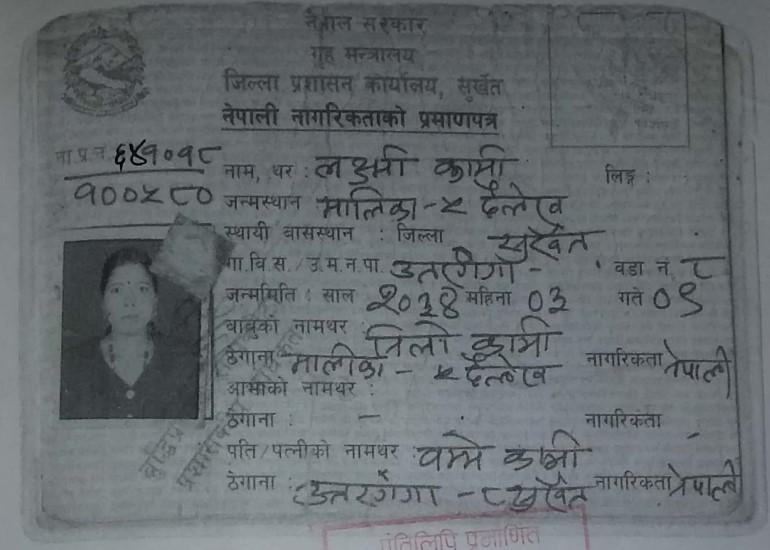 नेपाल सरकार
गृह मन्त्रालय
जिल्ला प्रशासन कार्यालय, सुर्खेत
नेपाली नागरिकताको प्रमाणपत्र
ना.प्र.नं. ६४१०१८
१००५८०
नाम, थर : लक्ष्मी कामी लिङ्ग :
जन्मस्थान मालिका - ५ दैलेख
स्थायी बासस्थान : जिल्ला सुर्खेत
गा.वि.स./उ.म.न.पा. उत्तरगंगा - वडा नं. ८
जन्ममिति : साल २०३४ महिना ०३ गते ०९
बाबुको नामथर :
ठेगाना मालीका - ५ दैलेख नागरिकता नेपाली
आमाको नामथर :
ठेगाना : - नागरिकता -
पति/पत्नीको नामथर : वम्मे कामी
ठेगाना : उत्तरगंगा - ८ सुर्खेत नागरिकता नेपाली
प्रतिलिपि प्रमाणित